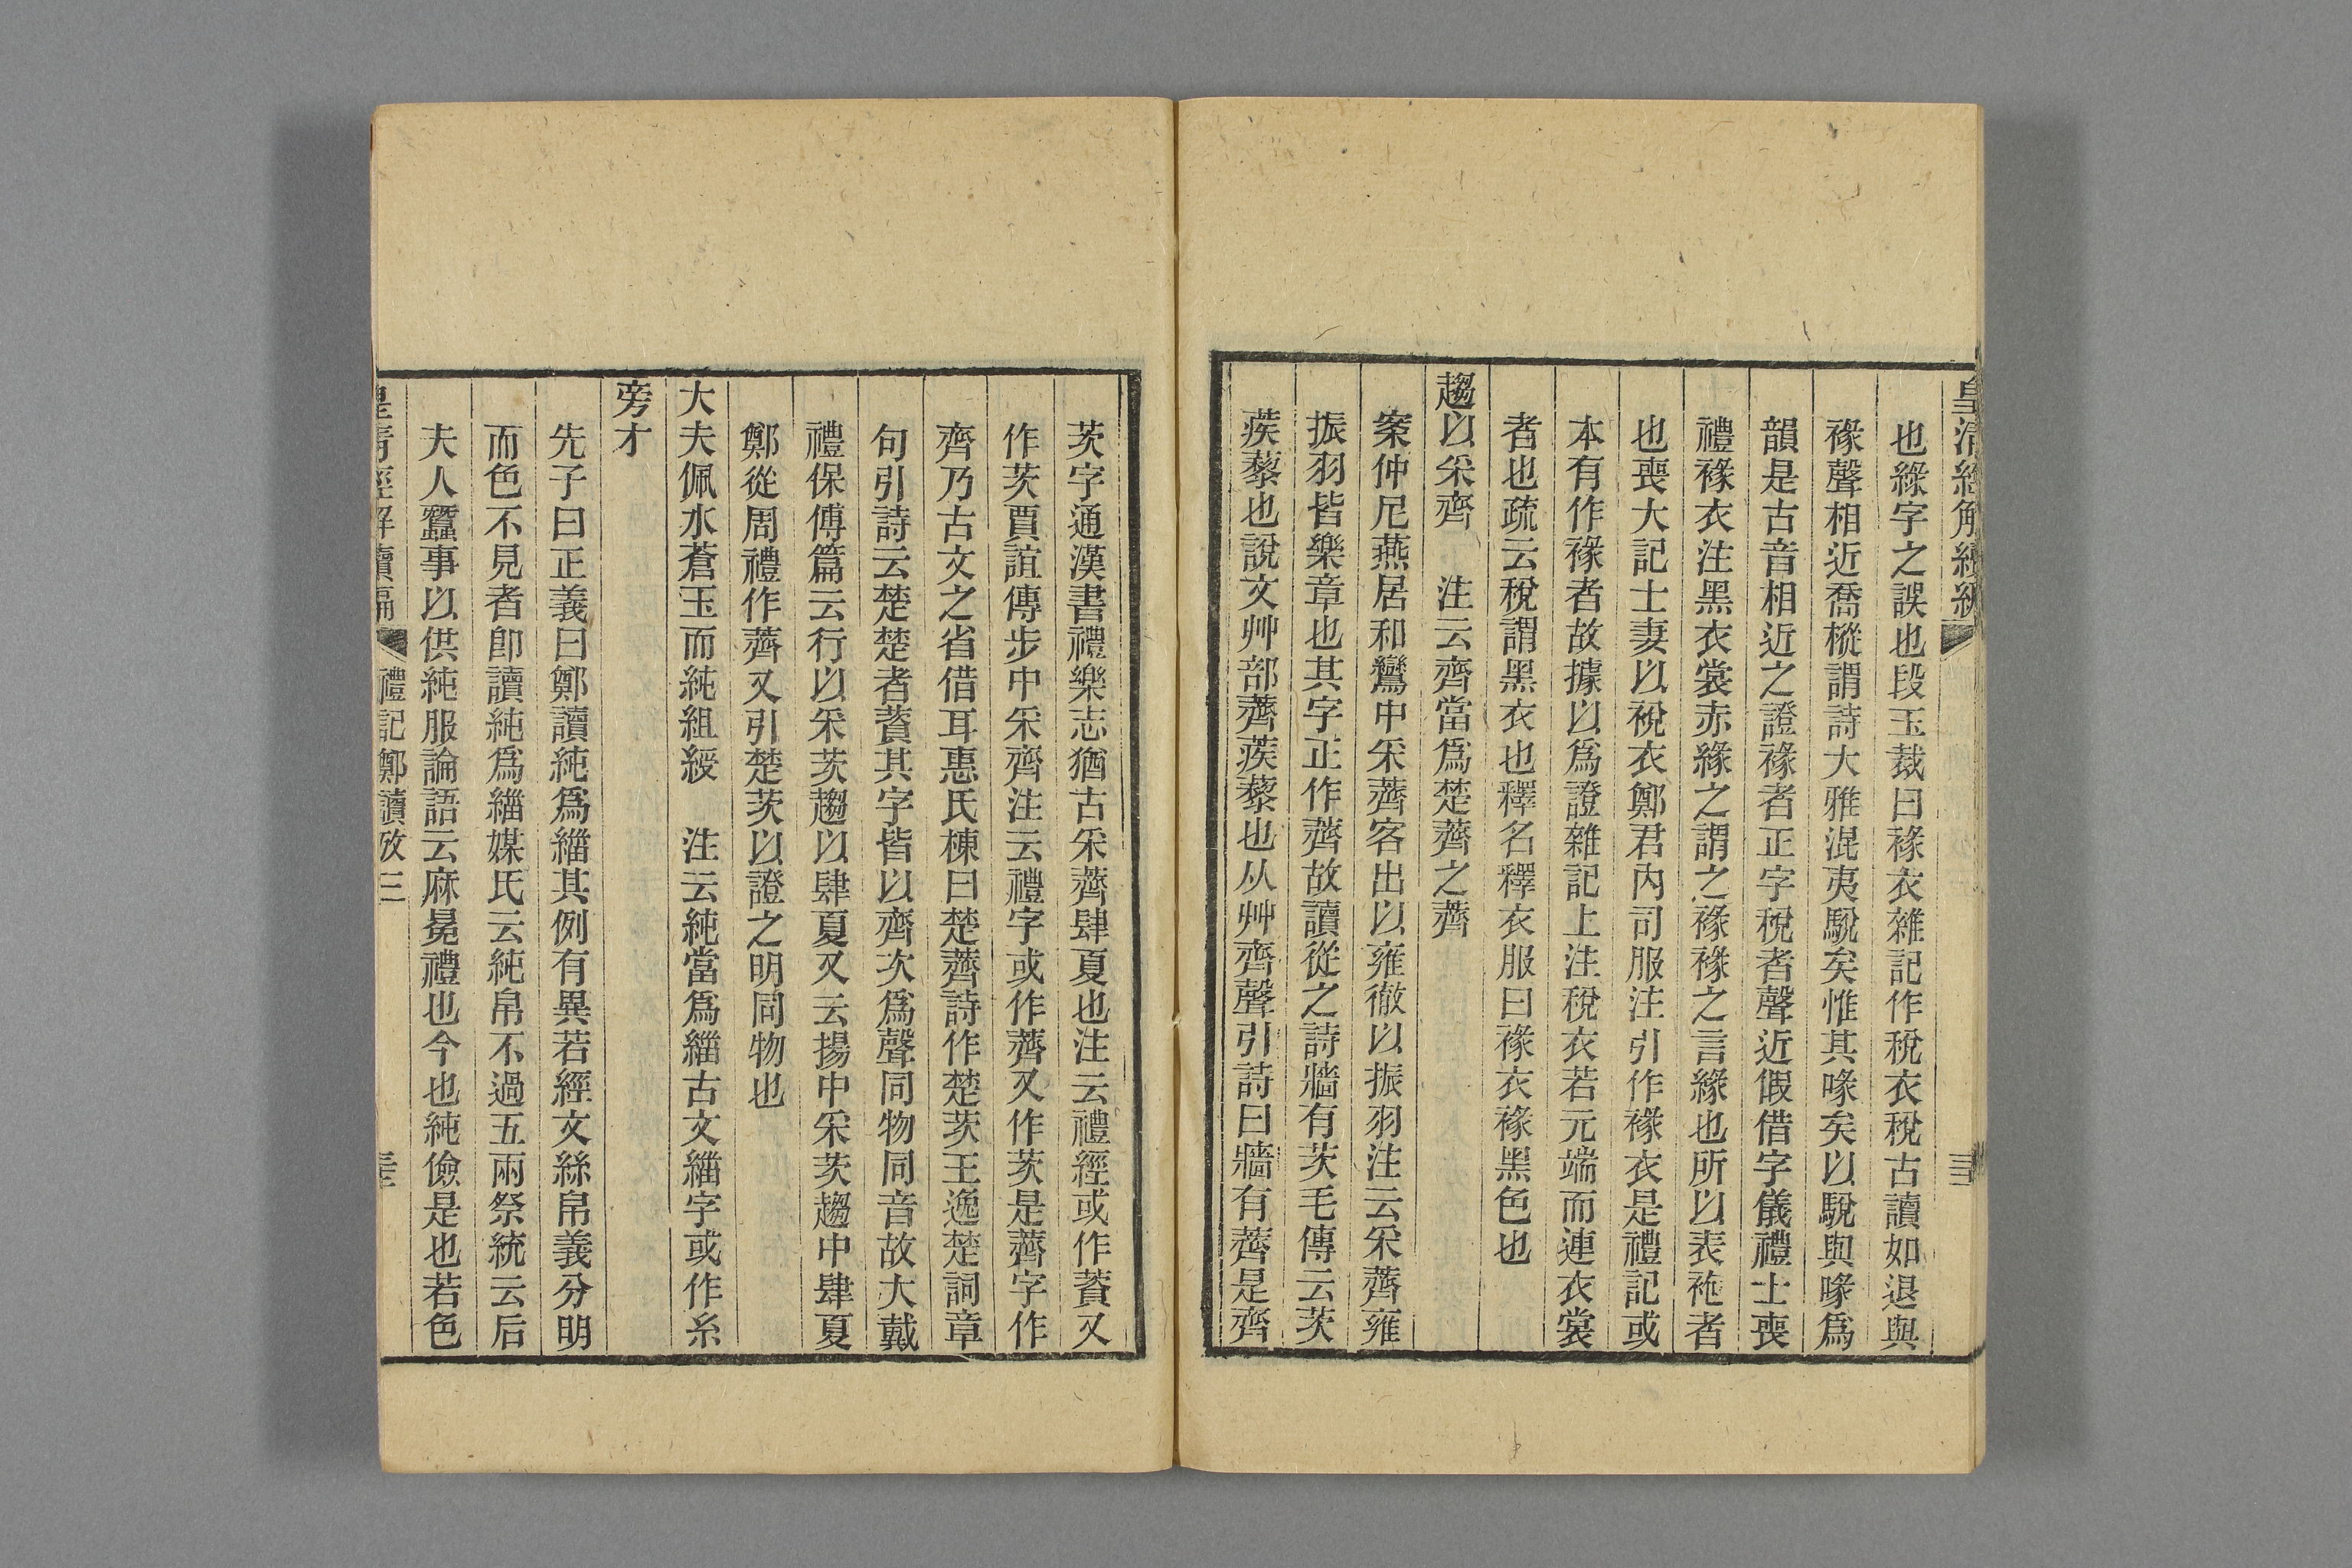 皇清經解續編
也緣字之誤也段玉裁曰褖衣雜記作稅衣稅古讀如退與
褖聲相近喬樅謂詩大雅混夷駾矣惟其喙矣以駾與喙爲
韻是古音相近之證褖者正字稅者聲近假借字儀禮士喪
禮褖衣注黑衣裳赤緣之謂之褖褖之言緣也所以表袘者
也喪大記士妻以稅衣鄭君內司服注引作褖衣是禮記或
本有作褖者故據以爲證雜記上注稅衣若元端而連衣裳
者也疏云稅謂黑衣也釋名釋衣服曰褖衣褖黑色也
趨以采齊　注云齊當爲楚薺之薺
案仲尼燕居和鸞中采薺客出以雍徹以振羽注云采薺雍
振羽皆樂章也其字正作薺故讀從之詩牆有茨毛傳云茨
蒺藜也說文艸部薺蒺藜也从艸齊聲引詩曰牆有薺是齊
茨字通漢書禮樂志猶古采薺肆夏也注云禮經或作薋又
作茨賈誼傳步中采齊注云禮字或作薺又作茨是薺字作
齊乃古文之省借耳惠氏棟曰楚薺詩作楚茨王逸楚詞章
句引詩云楚楚者薋其字皆以齊次爲聲同物同音故大戴
禮保傅篇云行以采茨趨以肆夏又云揚中采茨趨中肆夏
鄭從周禮作薺又引楚茨以證之明同物也
大夫佩水蒼玉而純組綬　注云純當爲緇古文緇字或作糸
旁才
先子曰正義曰鄭讀純爲緇其例有異若經文絲帛義分明
而色不見者卽讀純爲緇媒氏云純帛不過五兩祭統云后
夫人蠶事以供純服論語云麻冕禮也今也純儉是也若色
皇清經解續編　禮記鄭讀攷三